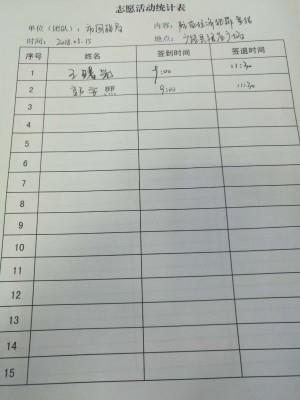 志愿活动统计表
单位（团队）：市国税局 内容：
时间：2018.05.15 地点：
序号 姓名 签到时间 签退时间
1 王 9:00 11:30
2 9:00 11:30
3
4
5
6
7
8
9
10
11
12
13
14
15